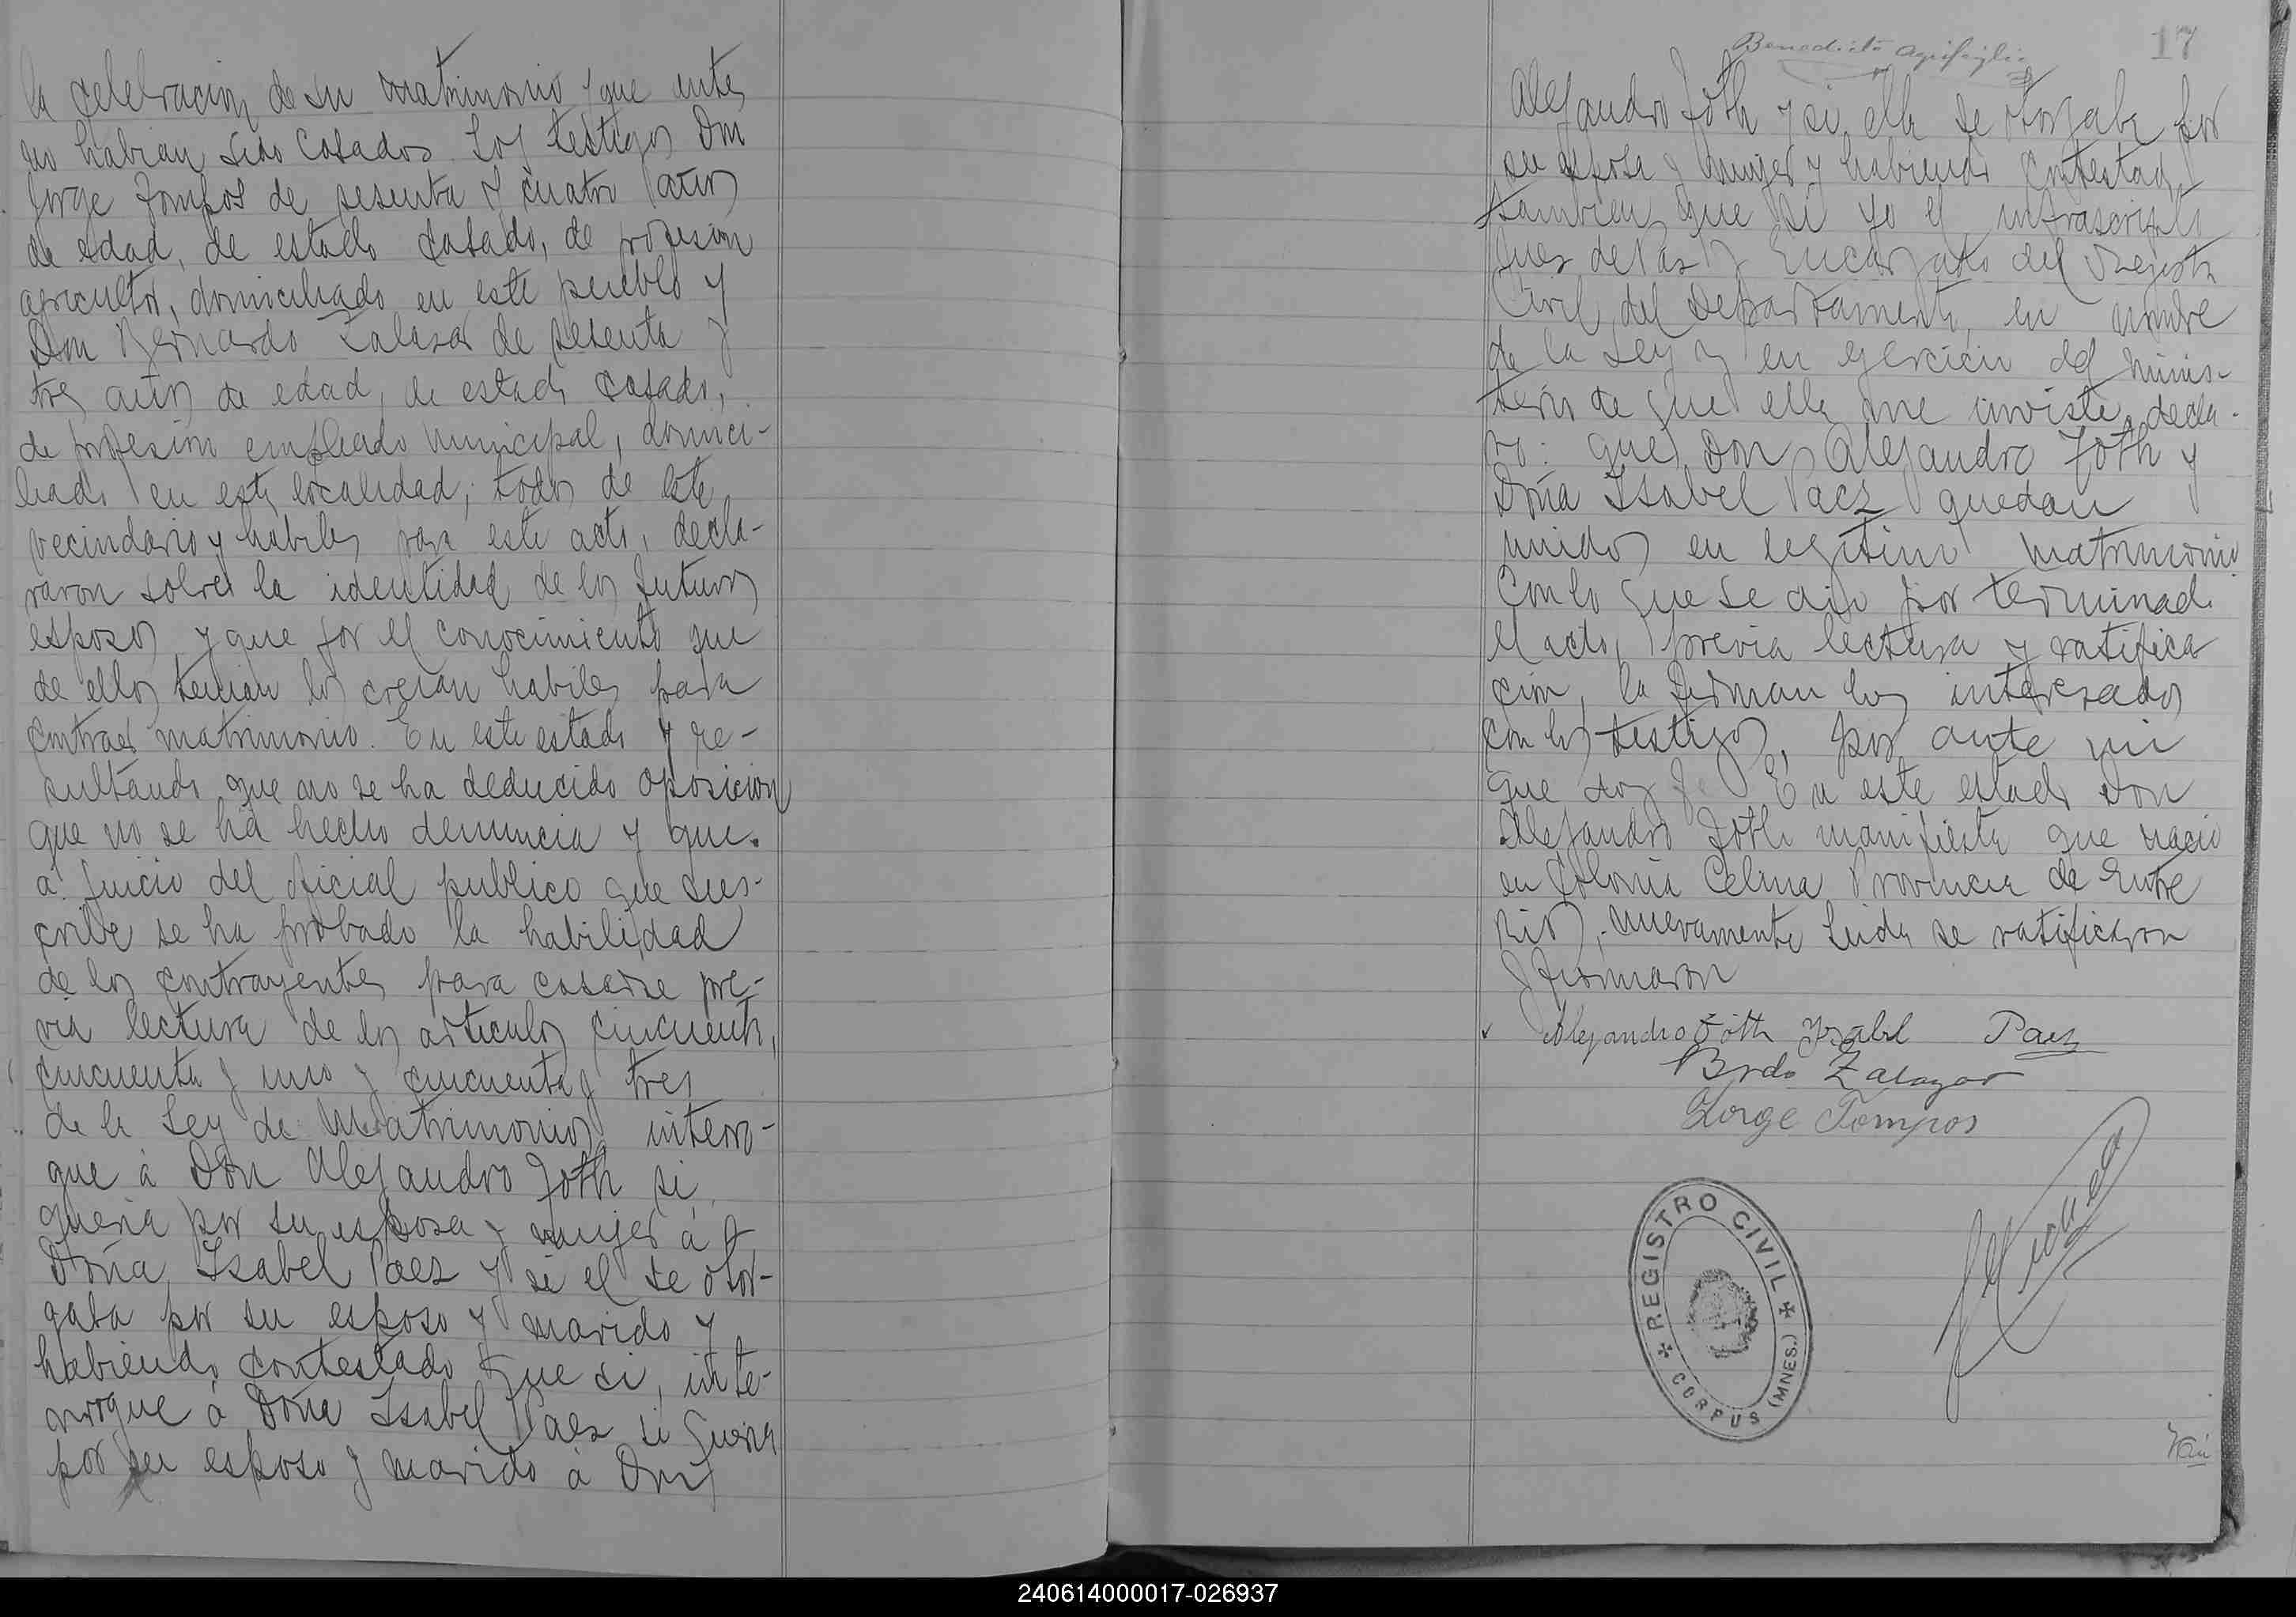 la celebracion de su matrimonio y que antes
no habian sido casados. Los testigos Don
Jorge Tompos de sesenta y cuatro años
de edad, de estado casado, de profesion
agricultor, domiciliado en este pueblo y
Don Bernardo Zalazar de sesenta y
tres años de edad, de estado casado,
de profesión empleado municipal, domici-
liado en esta localidad; todos de este
vecindario y habiles para este acto, decla-
raron sobre la identidad de los futuros
esposos y que por el conocimiento que
de ellos tenian los creian habiles para
contraer matrimonio. En este estado y re-
sultando que no se ha deducido oposicion
que no se ha hecho denuncia y que
a juicio del oficial publico que sus-
cribe se ha probado la habilidad
de los contrayentes para casarse pre-
via lectura de los articulos cincuenta,
cincuenta y uno y cincuenta y tres
de la Ley de Matrimonios interro-
gue á Don Alejandro Toth si
queria por su esposa y mujer á
Doña Isabel Paez y si el se otor-
gaba por su esposo y marido y
habiendo contestado que si, inte-
rrogue á Doña Isabel Paez si queria
por su esposo y marido á Don
17
Alejandro Toth y si ella se otorgaba por
su esposa y mujer y habiendo contestado
tambien que si yo el infrascripto
Juez de Paz y Encargado del Registro
Civil del Departamento, en nombre
de la Ley y en ejercicio del minis-
terio de que ella me inviste decla-
ro: que Don Alejandro Toth y
Doña Isabel Paez quedan
unidos en legitimo matrimonio
Con lo que se dio por terminado
el acto, previa lectura y ratifica
cion, la firman los interesados
con los testigos, por ante mi
que doy fe. En este estado Don
Alejandro Toth manifiesta que nació
en Colonia Celina Provincia de Entre
Rios, nuevamente leida se ratificaron
y firmaron
Alejandro Tóth Ysabel Paez
Brdo Zalazar
Jorge Tompos
REGISTRO CIVIL
CORPUS (MNES.)
240614000017-026937